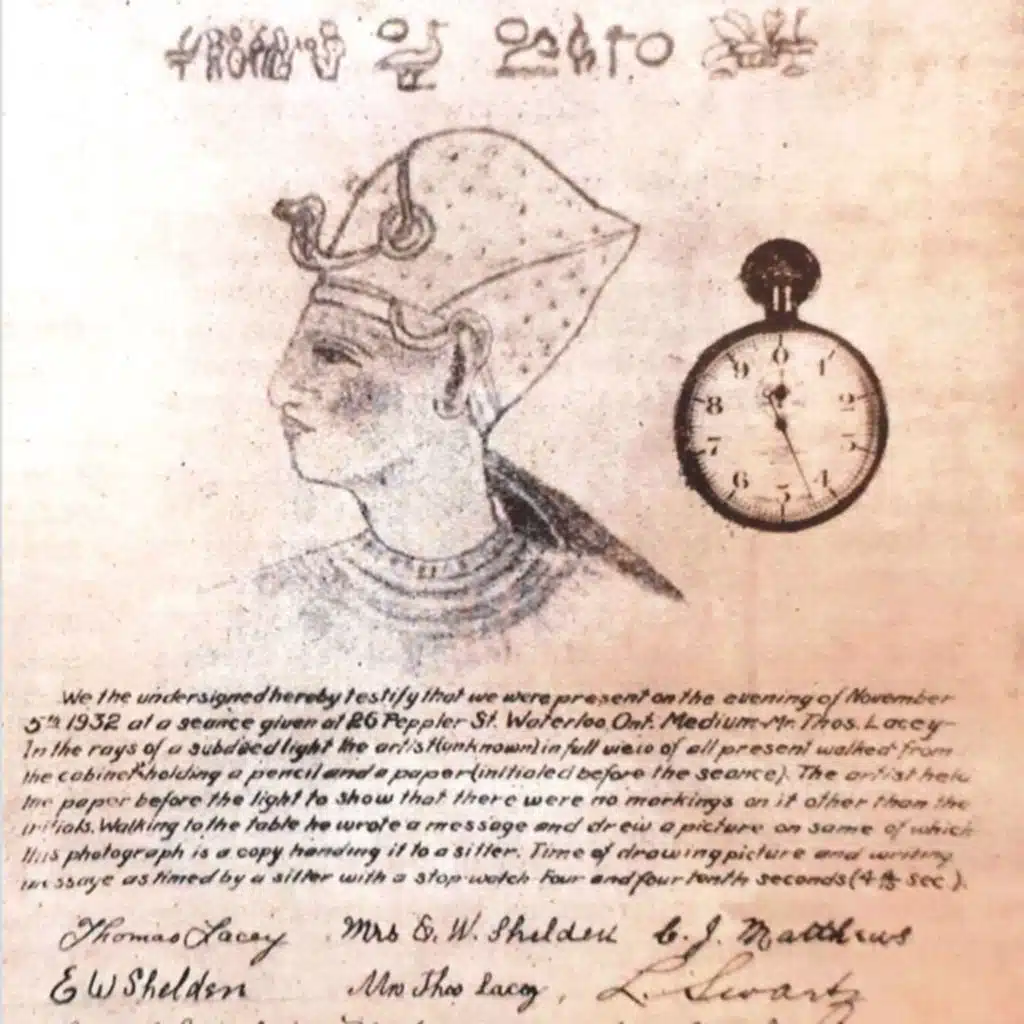 0
9 1
8 2
7 3
6 4
5
We the undersigned hereby testify that we were present on the evening of November
5th 1932 at a seance given at 26 Peppler St. Waterloo, Ont. Medium-Mr. Thos. Lacey-
In the rays of a subdued light the artist (unknown) in full view of all present walked from
the cabinet holding a pencil and a paper (initialed before the seance). The artist held
the paper before the light to show that there were no markings on it other than the
initials. Walking to the table he wrote a message and drew a picture on same of which
this photograph is a copy handing it to a sitter. Time of drawing picture and writing
message as timed by a sitter with a stop-watch Four and four tenth seconds (4 4/10 sec.).
Thomas Lacey Mrs E. W. Shelden C. J. Matthews
E W Shelden Mrs Thos Lacey, L. Swartz